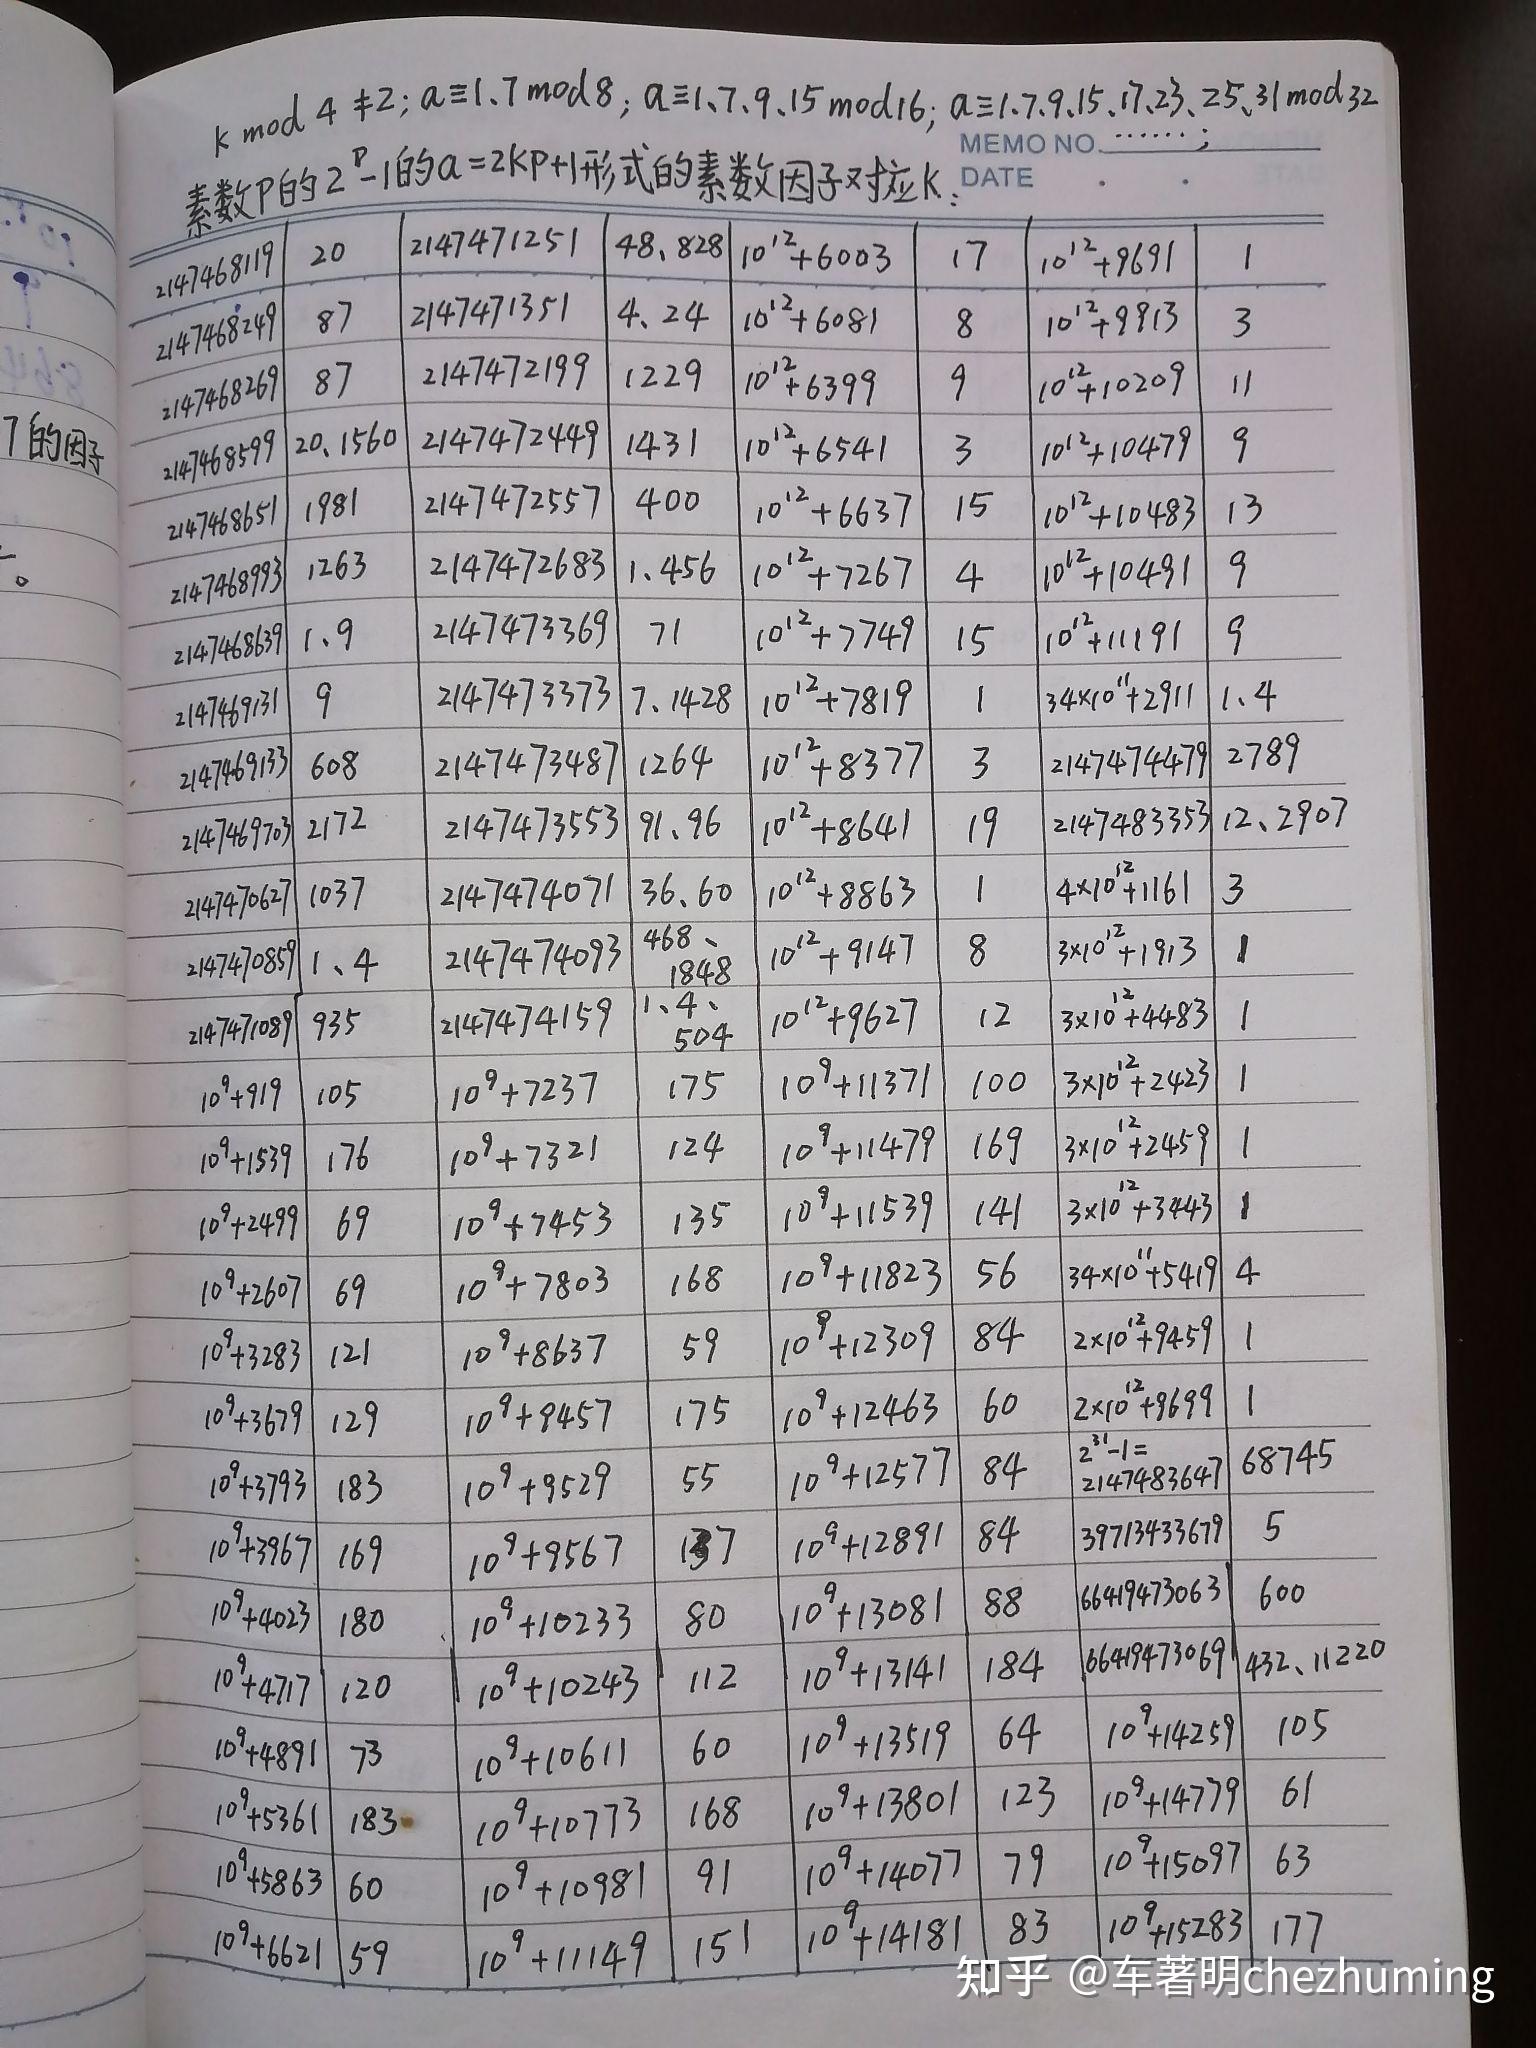 k mod 4 ≠2; a≡1、7 mod 8; a≡1、7、9、15 mod 16; a≡1、7、9、15、17、23、25、31 mod 32
MEMO NO. ;
素数P的2^P-1的a=2KP+1形式的素数因子对应K: DATE
2147468119 20 2147471251 48、828 10^12+6003 17 10^12+9691 1
2147468249 87 2147471351 4、24 10^12+6081 8 10^12+9913 3
2147468269 87 2147472199 1229 10^12+6399 9 10^12+10209 11
7的因子
2147468599 20、1560 2147472449 1431 10^12+6541 3 10^12+10479 9
2147468651 1981 2147472557 400 10^12+6637 15 10^12+10483 13
2147468993 1263 2147472683 1、456 10^12+7267 4 10^12+10491 9
2147468639 1、9 2147473369 71 10^12+7749 15 10^12+11191 9
2147469131 9 2147473373 7、1428 10^12+7819 1 34×10^11+2911 1、4
2147469133 608 2147473487 1264 10^12+8377 3 2147474479 2789
2147469703 2172 2147473553 91、96 10^12+8641 19 2147483353 12、2907
2147470627 1037 2147474071 36、60 10^12+8863 1 4×10^12+1161 3
2147470859 1、4 2147474093 468、1848 10^12+9147 8 3×10^12+1913 1
2147471089 935 2147474159 1、4、504 10^12+9627 12 3×10^12+4483 1
10^9+919 105 10^9+7237 175 10^9+11371 100 3×10^12+2423 1
10^9+1539 176 10^9+7321 124 10^9+11479 169 3×10^12+2459 1
10^9+2499 69 10^9+7453 135 10^9+11539 141 3×10^12+3443 1
10^9+2607 69 10^9+7803 168 10^9+11823 56 34×10^11+5419 4
10^9+3283 121 10^9+8637 59 10^9+12309 84 2×10^12+9459 1
10^9+3679 129 10^9+9457 175 10^9+12463 60 2×10^12+9699 1
10^9+3793 183 10^9+9529 55 10^9+12577 84 2^31-1=2147483647 68745
10^9+3967 169 10^9+9567 137 10^9+12891 84 39713433679 5
10^9+4023 180 10^9+10233 80 10^9+13081 88 66419473063 600
10^9+4717 120 10^9+10243 112 10^9+13141 184 66419473069 432、11220
10^9+4891 73 10^9+10611 60 10^9+13519 64 10^9+14259 105
10^9+5361 183 10^9+10773 168 10^9+13801 123 10^9+14779 61
10^9+5863 60 10^9+10981 91 10^9+14077 79 10^9+15097 63
10^9+6621 59 10^9+11149 151 10^9+14181 83 10^9+15283 177
知乎 @车著明chezhuming